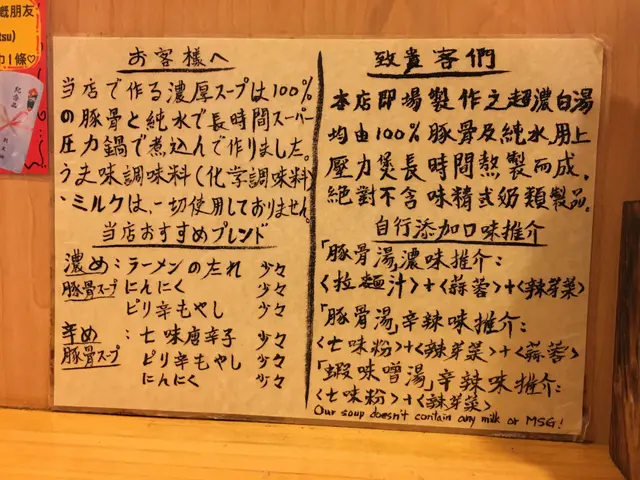 嘅朋友
tsu)
巾1條♡
お客様へ
当店で作る濃厚スープは100%
の豚骨と純水で長時間スーパー
圧力鍋で煮込んで作りました。
うま味調味料(化学調味料)
・ミルクは、一切使用しておりません。
当店おすすめブレンド
濃め:ラーメンのたれ 少々
豚骨スープ にんにく 少々
ピリ辛もやし 少々
辛め:七味唐辛子 少々
豚骨スープ ピリ辛もやし 少々
にんにく 少々
致貴客們
本店即場製作之超濃白湯
均由100%豚骨及純水,用上
壓力煲長時間熬製而成,
絕對不含味精或奶類製品。
自行添加口味推介
「豚骨湯」濃味推介:
<拉麵汁>+<蒜蓉>+<辣芽菜>
「豚骨湯」辛辣味推介:
<七味粉>+<辣芽菜>+<蒜蓉>
「蝦味噌湯」辛辣味推介:
<七味粉>+<辣芽菜>
Our soup doesn't contain any milk or MSG!